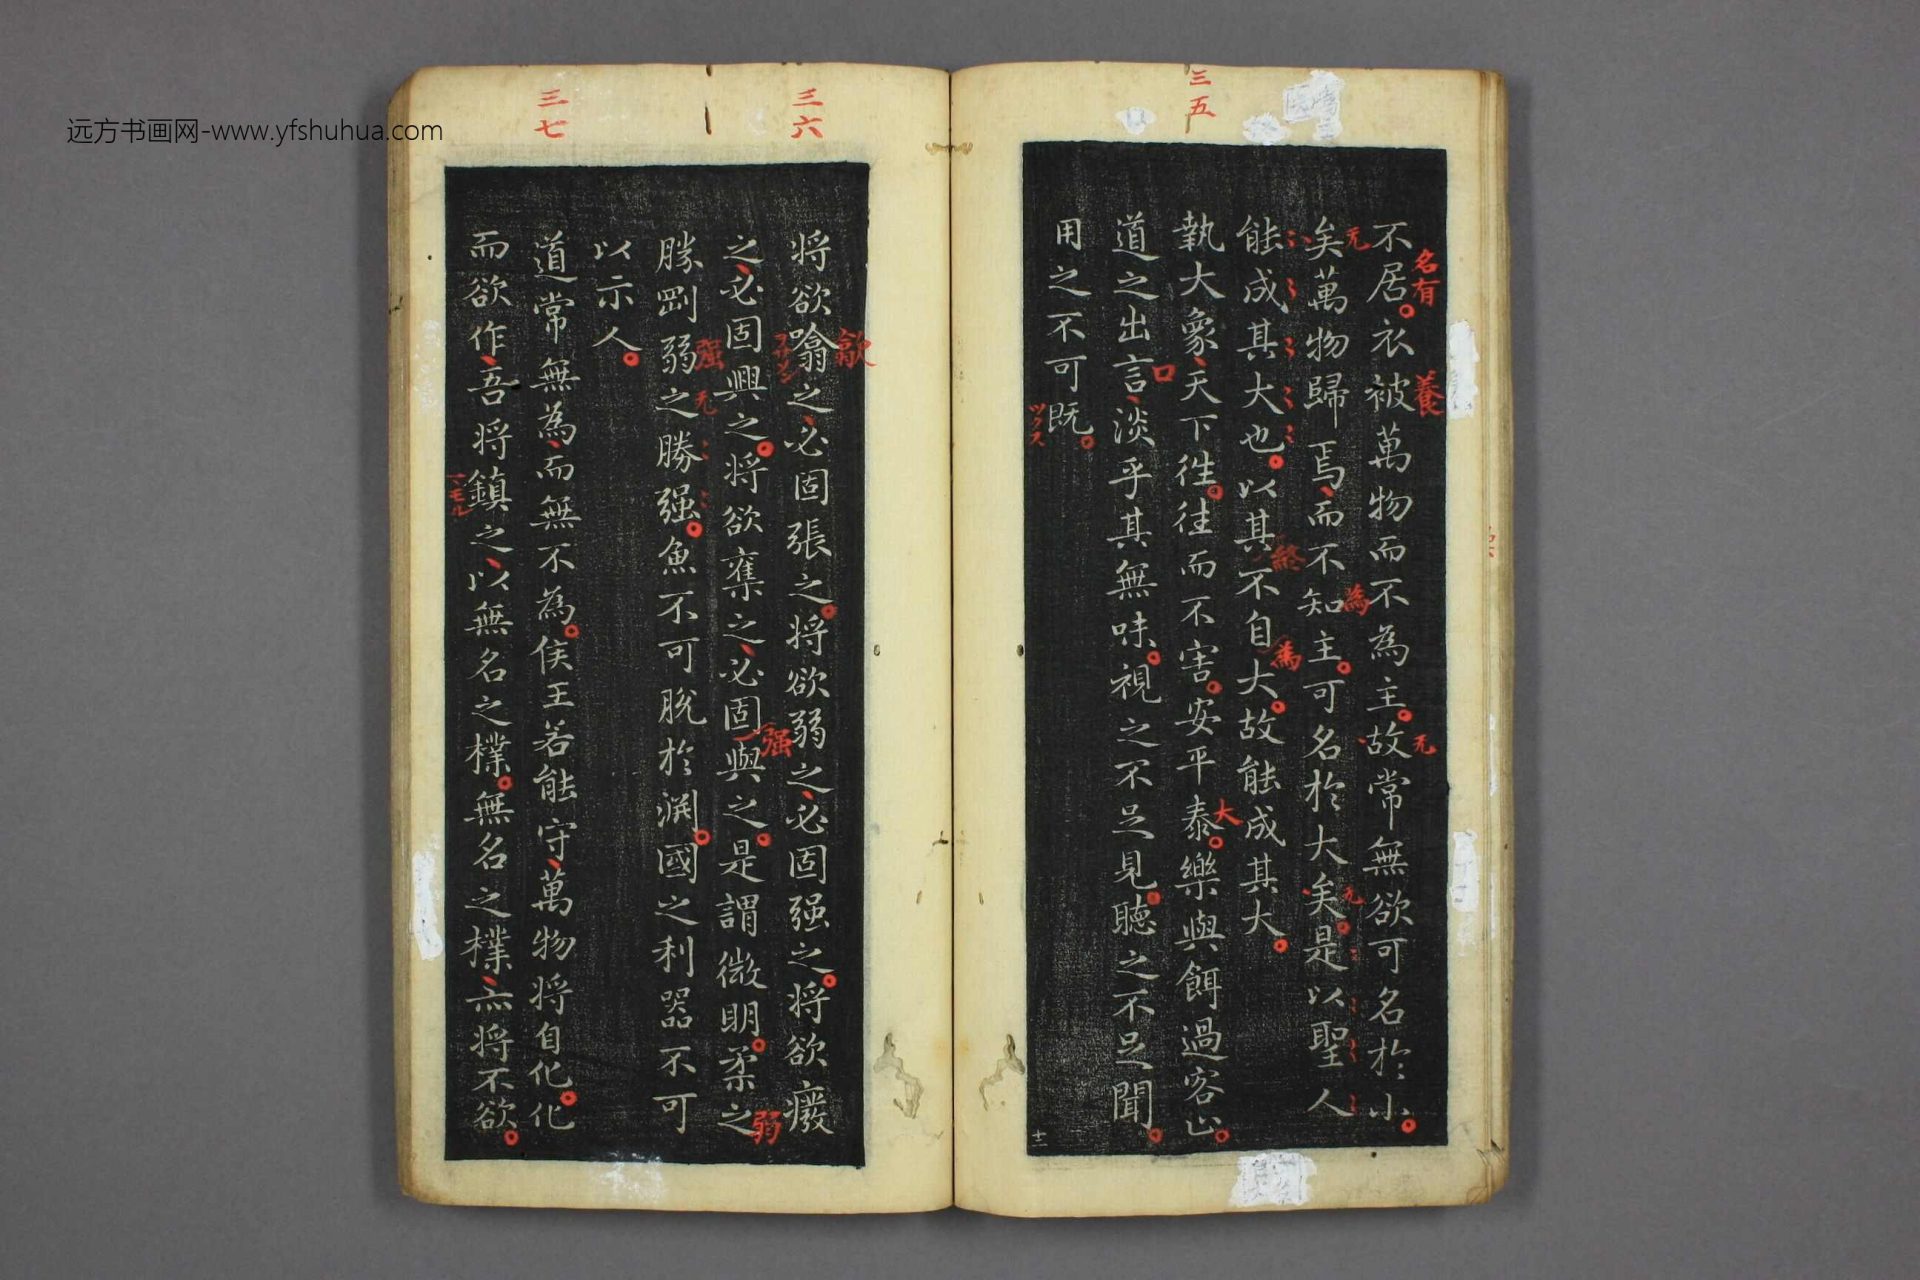 远方书画网-www.yfshuhua.com
三五
不居衣被萬物而不為主故常無欲可名於小
名有
養
无
矣萬物歸焉而不知主可名於大矣是以聖人
无
為
无
能成其大也以其不自大故能成其大
終
為
執大象天下往往而不害安平泰樂與餌過客止
大
道之出言淡乎其無味視之不足見聽之不足聞
口
用之不可既
ツクス
十二
三六
三七
将欲噏之必固張之将欲弱之必固强之将欲癈
歙
之必固興之将欲奪之必固與之是謂微明柔之
强
弱
勝剛弱之勝强魚不可脱於渊國之利器不可
强
无
以示人
道常無為而無不為侯王若能守萬物将自化化
而欲作吾将鎮之以無名之樸無名之樸亦将不欲